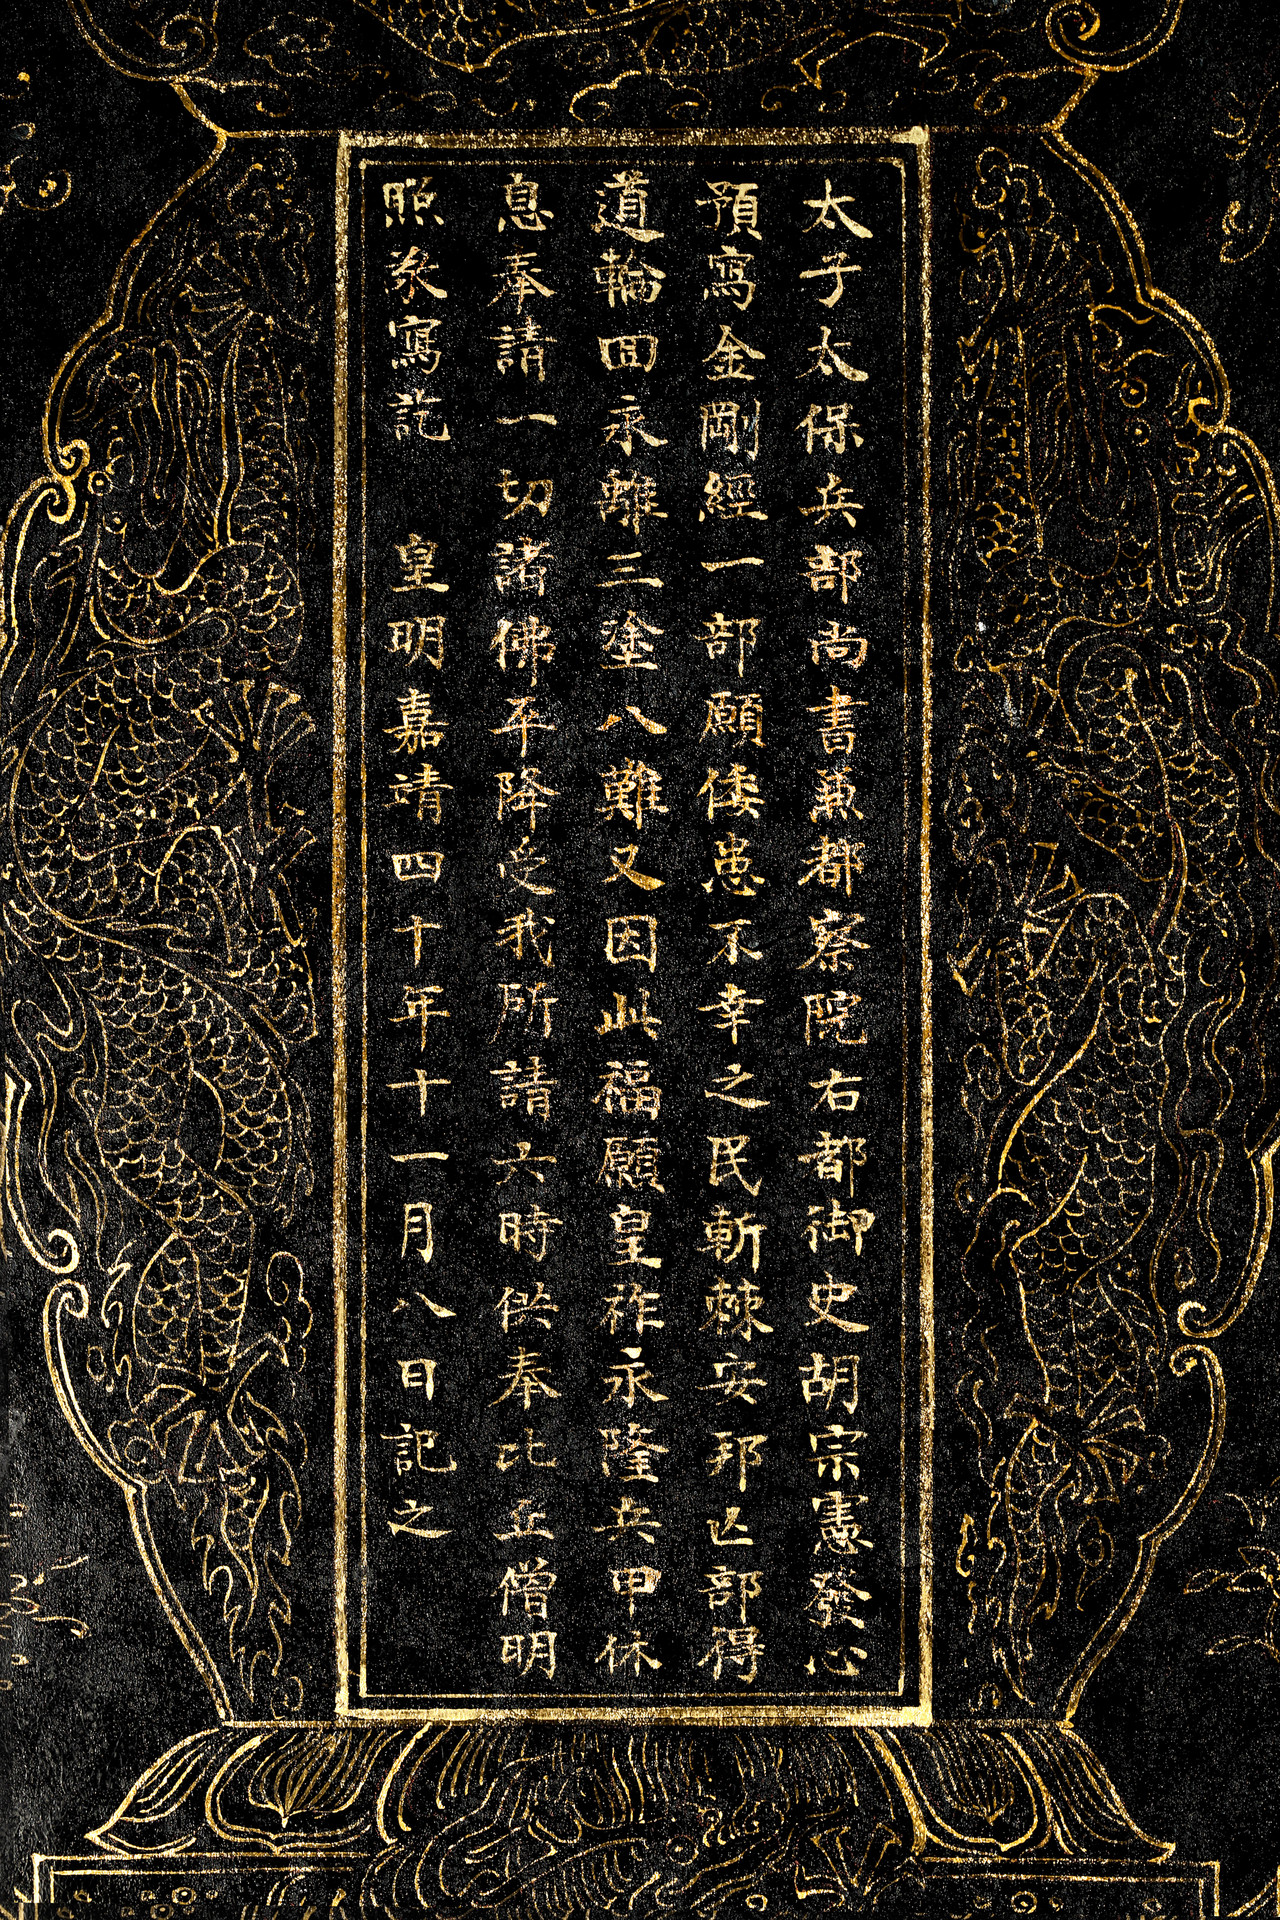 太子太保兵部尚書兼都察院右都御史胡宗憲發心
預寫金剛經一部願倭患不幸之民斬棘安邦亾部得
道輪回永離三塗八難又因此福願皇祚永隆兵甲休
息奉請一切諸佛平降受我所請六時供奉比丘僧明
照叅寫訖 皇明嘉靖四十年十一月八日記之